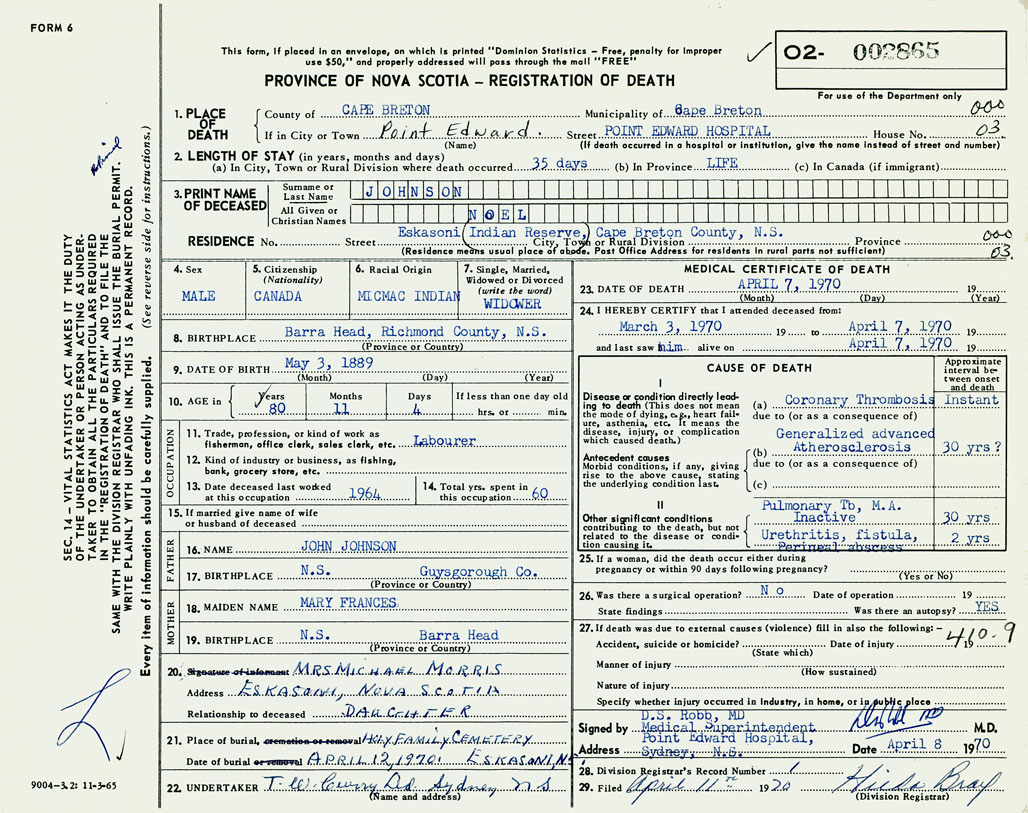 FORM 6
This form, if placed in an envelope, on which is printed "Dominion Statistics – Free, penalty for improper
use $50," and properly addressed will pass through the mail "FREE"
PROVINCE OF NOVA SCOTIA – REGISTRATION OF DEATH
02- 002865
For use of the Department only
1. PLACE OF DEATH
County of CAPE BRETON Municipality of Cape Breton 000
If in City or Town Point Edward. Street POINT EDWARD HOSPITAL House No. 03.
(Name) (If death occurred in a hospital or institution, give the name instead of street and number)
2. LENGTH OF STAY (in years, months and days)
(a) In City, Town or Rural Division where death occurred 35 days (b) In Province LIFE (c) In Canada (if immigrant)
3. PRINT NAME OF DECEASED
Surname or Last Name JOHNSON
All Given or Christian Names NOEL
Eskasoni (Indian Reserve,) Cape Breton County, N.S. 000
RESIDENCE No. Street City, Town or Rural Division Province
(Residence means usual place of abode. Post Office Address for residents in rural parts not sufficient) 03.
4. Sex MALE
5. Citizenship (Nationality) CANADA
6. Racial Origin MICMAC INDIAN
7. Single, Married, Widowed or Divorced (write the word) WIDOWER
8. BIRTHPLACE Barra Head, Richmond County, N.S.
(Province or Country)
9. DATE OF BIRTH May 3, 1889
(Month) (Day) (Year)
10. AGE in Years 80 Months 11 Days 4 If less than one day old hrs. or min.
OCCUPATION
11. Trade, profession, or kind of work as fisherman, office clerk, sales clerk, etc. Labourer
12. Kind of industry or business, as fishing, bank, grocery store, etc.
13. Date deceased last worked at this occupation 1964
14. Total yrs. spent in this occupation 60
15. If married give name of wife or husband of deceased
FATHER
16. NAME JOHN JOHNSON
17. BIRTHPLACE N.S. Guysgorough Co.
(Province or Country)
MOTHER
18. MAIDEN NAME MARY FRANCES
19. BIRTHPLACE N.S. Barra Head
(Province or Country)
20. Signature of informant MRS MICHAEL MORRIS
Address ESKASONI, NOVA SCOTIA
Relationship to deceased DAUGHTER
21. Place of burial, cremation or removal HOLY FAMILY CEMETERY
Date of burial or removal APRIL 12, 1970. ESKASONI, N.S
22. UNDERTAKER T. W. Curry Sydney NS
(Name and address)
MEDICAL CERTIFICATE OF DEATH
23. DATE OF DEATH APRIL 7, 1970 19
(Month) (Day) (Year)
24. I HEREBY CERTIFY that I attended deceased from:
March 3, 1970 19 to April 7, 1970 19
and last saw him alive on April 7, 1970 19
CAUSE OF DEATH
Approximate interval between onset and death
I
Disease or condition directly leading to death (This does not mean the mode of dying, e.g., heart failure, asthenia, etc. It means the disease, injury, or complication which caused death.)
(a) Coronary Thrombosis Instant
due to (or as a consequence of)
Antecedent causes
Morbid conditions, if any, giving rise to the above cause, stating the underlying condition last.
Generalized advanced
(b) Atherosclerosis 30 yrs ?
due to (or as a consequence of)
(c)
II
Other significant conditions
contributing to the death, but not related to the disease or condition causing it.
Pulmonary Tb, M.A.
Inactive 30 yrs
Urethritis, fistula, 2 yrs
Perineal abscess
25. If a woman, did the death occur either during
pregnancy or within 90 days following pregnancy?
(Yes or No)
26. Was there a surgical operation? No Date of operation 19
State findings Was there an autopsy? YES
27. If death was due to external causes (violence) fill in also the following:–
410.9
Accident, suicide or homicide? Date of injury 19
(State which)
Manner of injury
(How sustained)
Nature of injury
Specify whether injury occurred in Industry, in home, or in public place
Signed by D.S. Robb, MD M.D.
Medical Superintendent
Address Point Edward Hospital,
Sydney, N.S. Date April 8 1970
28. Division Registrar's Record Number 1
29. Filed April 11th 1970 Hilda Bray
(Division Registrar)
SEC. 14 – VITAL STATISTICS ACT MAKES IT THE DUTY
OF THE UNDERTAKER OR PERSON ACTING AS UNDER-
TAKER TO OBTAIN ALL THE PARTICULARS REQUIRED
IN THE "REGISTRATION OF DEATH" AND TO FILE THE
SAME WITH THE DIVISION REGISTRAR WHO SHALL ISSUE THE BURIAL PERMIT.
WRITE PLAINLY WITH UNFADING INK. THIS IS A PERMANENT RECORD.
Every item of information should be carefully supplied. (See reverse side for instructions.)
9004–3.2: 11-3-65